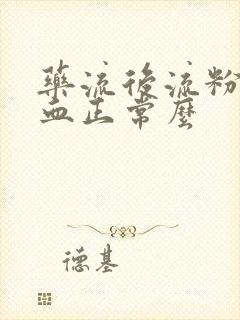 藥流後流粉
血正常麼
德基